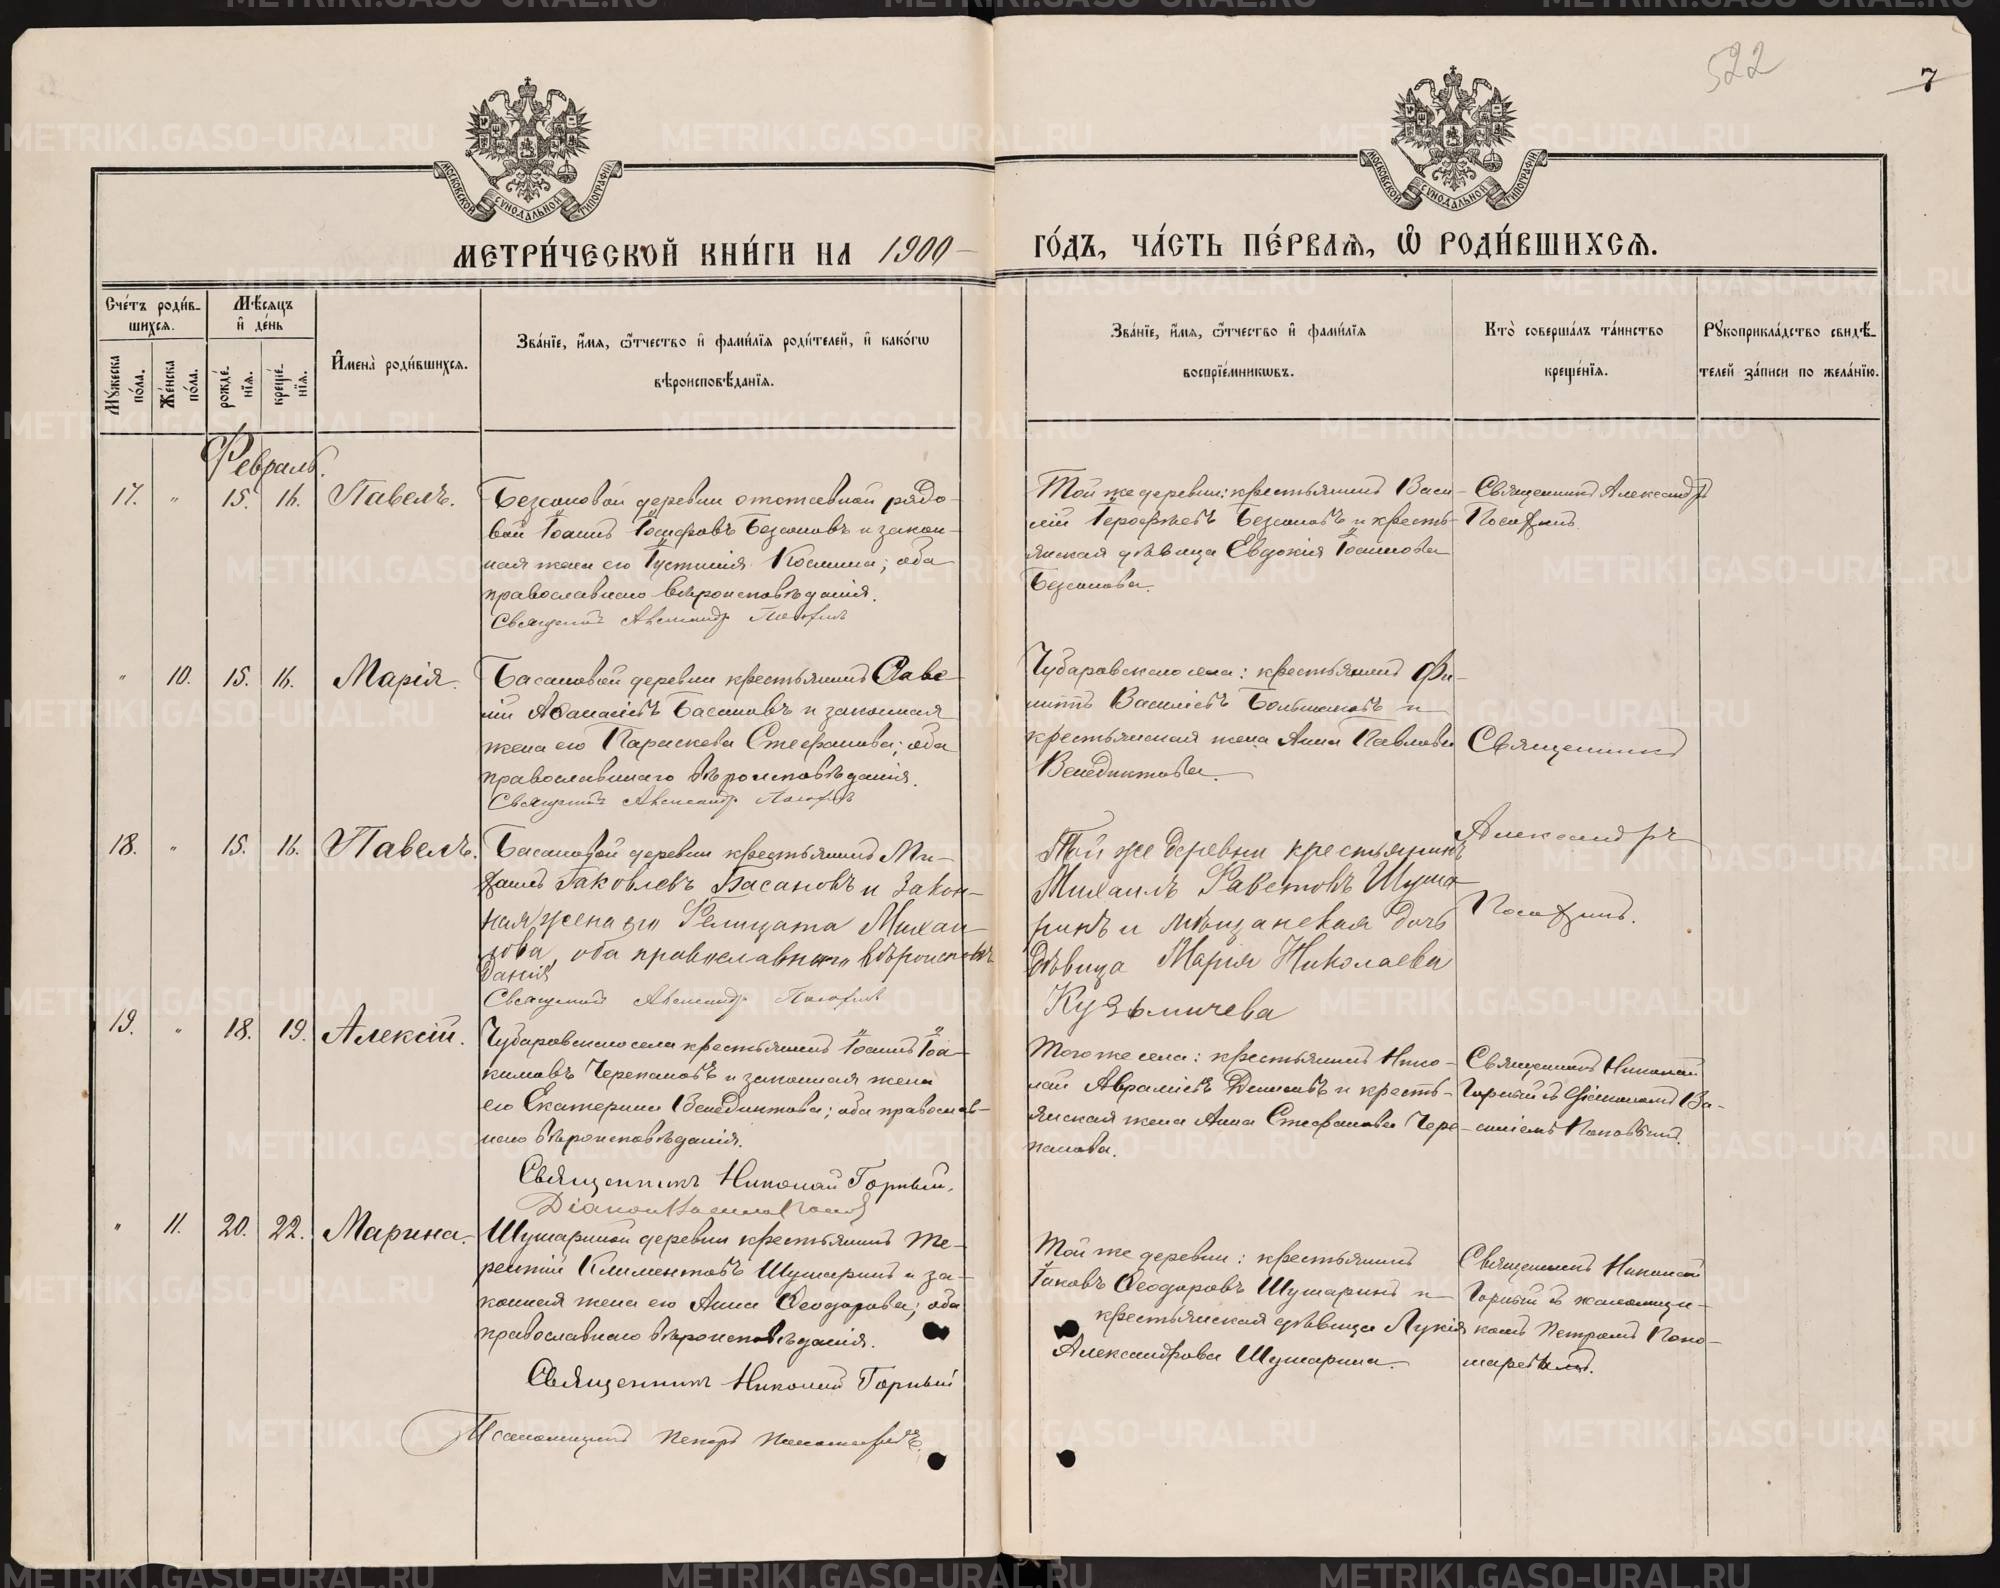 522
7
МОСКОВСКОЙ СУНОДАЛЬНОЙ ТИПОГРАФІИ
МОСКОВСКОЙ СУНОДАЛЬНОЙ ТИПОГРАФІИ
МЕТРИ́ЧЕСКОЙ КНИ́ГИ НА 1900
ГО́ДЪ, ЧА́СТЬ ПЕ́РВАѦ, Ѽ РОДИ́ВШИХСѦ.
Сче́тъ роди́в-
шихсѧ.
Му́жеска
по́ла.
Же́нска
по́ла.
Мѣ́сѧцъ
и де́нь
рожде́-
нїѧ.
креще́-
нїѧ.
Имена̀ роди́вшихсѧ.
Зва́нїе, и́мѧ, ѻ́тчество и фами́лїѧ роди́телей, и како́гѡ
вѣроисповѣ́данїѧ.
Зва́нїе, и́мѧ, ѻ́тчество и фами́лїѧ
воспрїе́мникѡвъ.
Кто̀ соверша́лъ та́инство
креще́нїѧ.
Рꙋкоприкла́дство свидѣ́-
телей за́писи по жела́нїю.
Февраль.
17. " 15. 16. Павелъ.
Безсоновой деревни отставной рядо-
вой Іоаннъ Іосифовъ Безсоновъ и закон-
ная жена его Іустинія Космина; оба
православнаго вѣроисповѣданія.
Священникъ Александръ
Той же деревни: крестьянинъ Васи-
лій Безсоновъ и кресть-
янская дѣвица Евдокія Іоаннова
Безсонова.
Священникъ Александръ
" 10. 15. 16. Марія.
Басановой деревни крестьянинъ Саве-
лій Аѳанасіевъ Басановъ и законная
жена его Параскева Стефанова; оба
православнаго вѣроисповѣданія.
Священникъ Александръ
Чубаровскаго села: крестьянинъ Фи-
липпъ Василіевъ Большаковъ и
крестьянская жена Анна Павлова
Венедиктова.
Священникъ
Александръ
18. " 15. 16. Павелъ.
Басановой деревни крестьянинъ Ми-
хаилъ Іаковлевъ Басановъ и закон-
ная жена его Фелицата Михаи-
лова, оба православнаго вѣроисповѣ
данія
Священникъ Александръ
Той же деревни крестьянинъ
Михаилъ Шуша
ринъ и мѣщанская дочь
дѣвица Марія Николаева
Кузьмичева
19. " 18. 19. Алексій.
Чубаровскаго села крестьянинъ Іоаннъ Іоа-
кимовъ Черепановъ и законная жена
его Екатерина Венедиктова; оба православ-
наго вѣроисповѣданія.
Священникъ Николай Горный.
Того же села: крестьянинъ Нико-
лай Авраміевъ Денисовъ и кресть-
янская жена Анна Стефанова Чере-
панова.
Священникъ Николай
Горный съ діакономъ Ва-
силіемъ Поповымъ.
" 11. 20. 22. Марина.
Шушариной деревни крестьянинъ Те-
рентій Климентовъ Шушаринъ и за-
конная жена его Анна Ѳеодорова; оба
православнаго вѣроисповѣданія.
Священникъ Николай Горный
Псаломщикъ Петръ Пономаревъ.
Той же деревни: крестьянинъ
Іаковъ Ѳеодоровъ Шушаринъ и
крестьянская дѣвица Лукія
Александрова Шушарина.
Священникъ Николай
Горный съ псаломщи-
комъ Петромъ Поно-
маревымъ.
METRIKI.GASO-URAL.RU